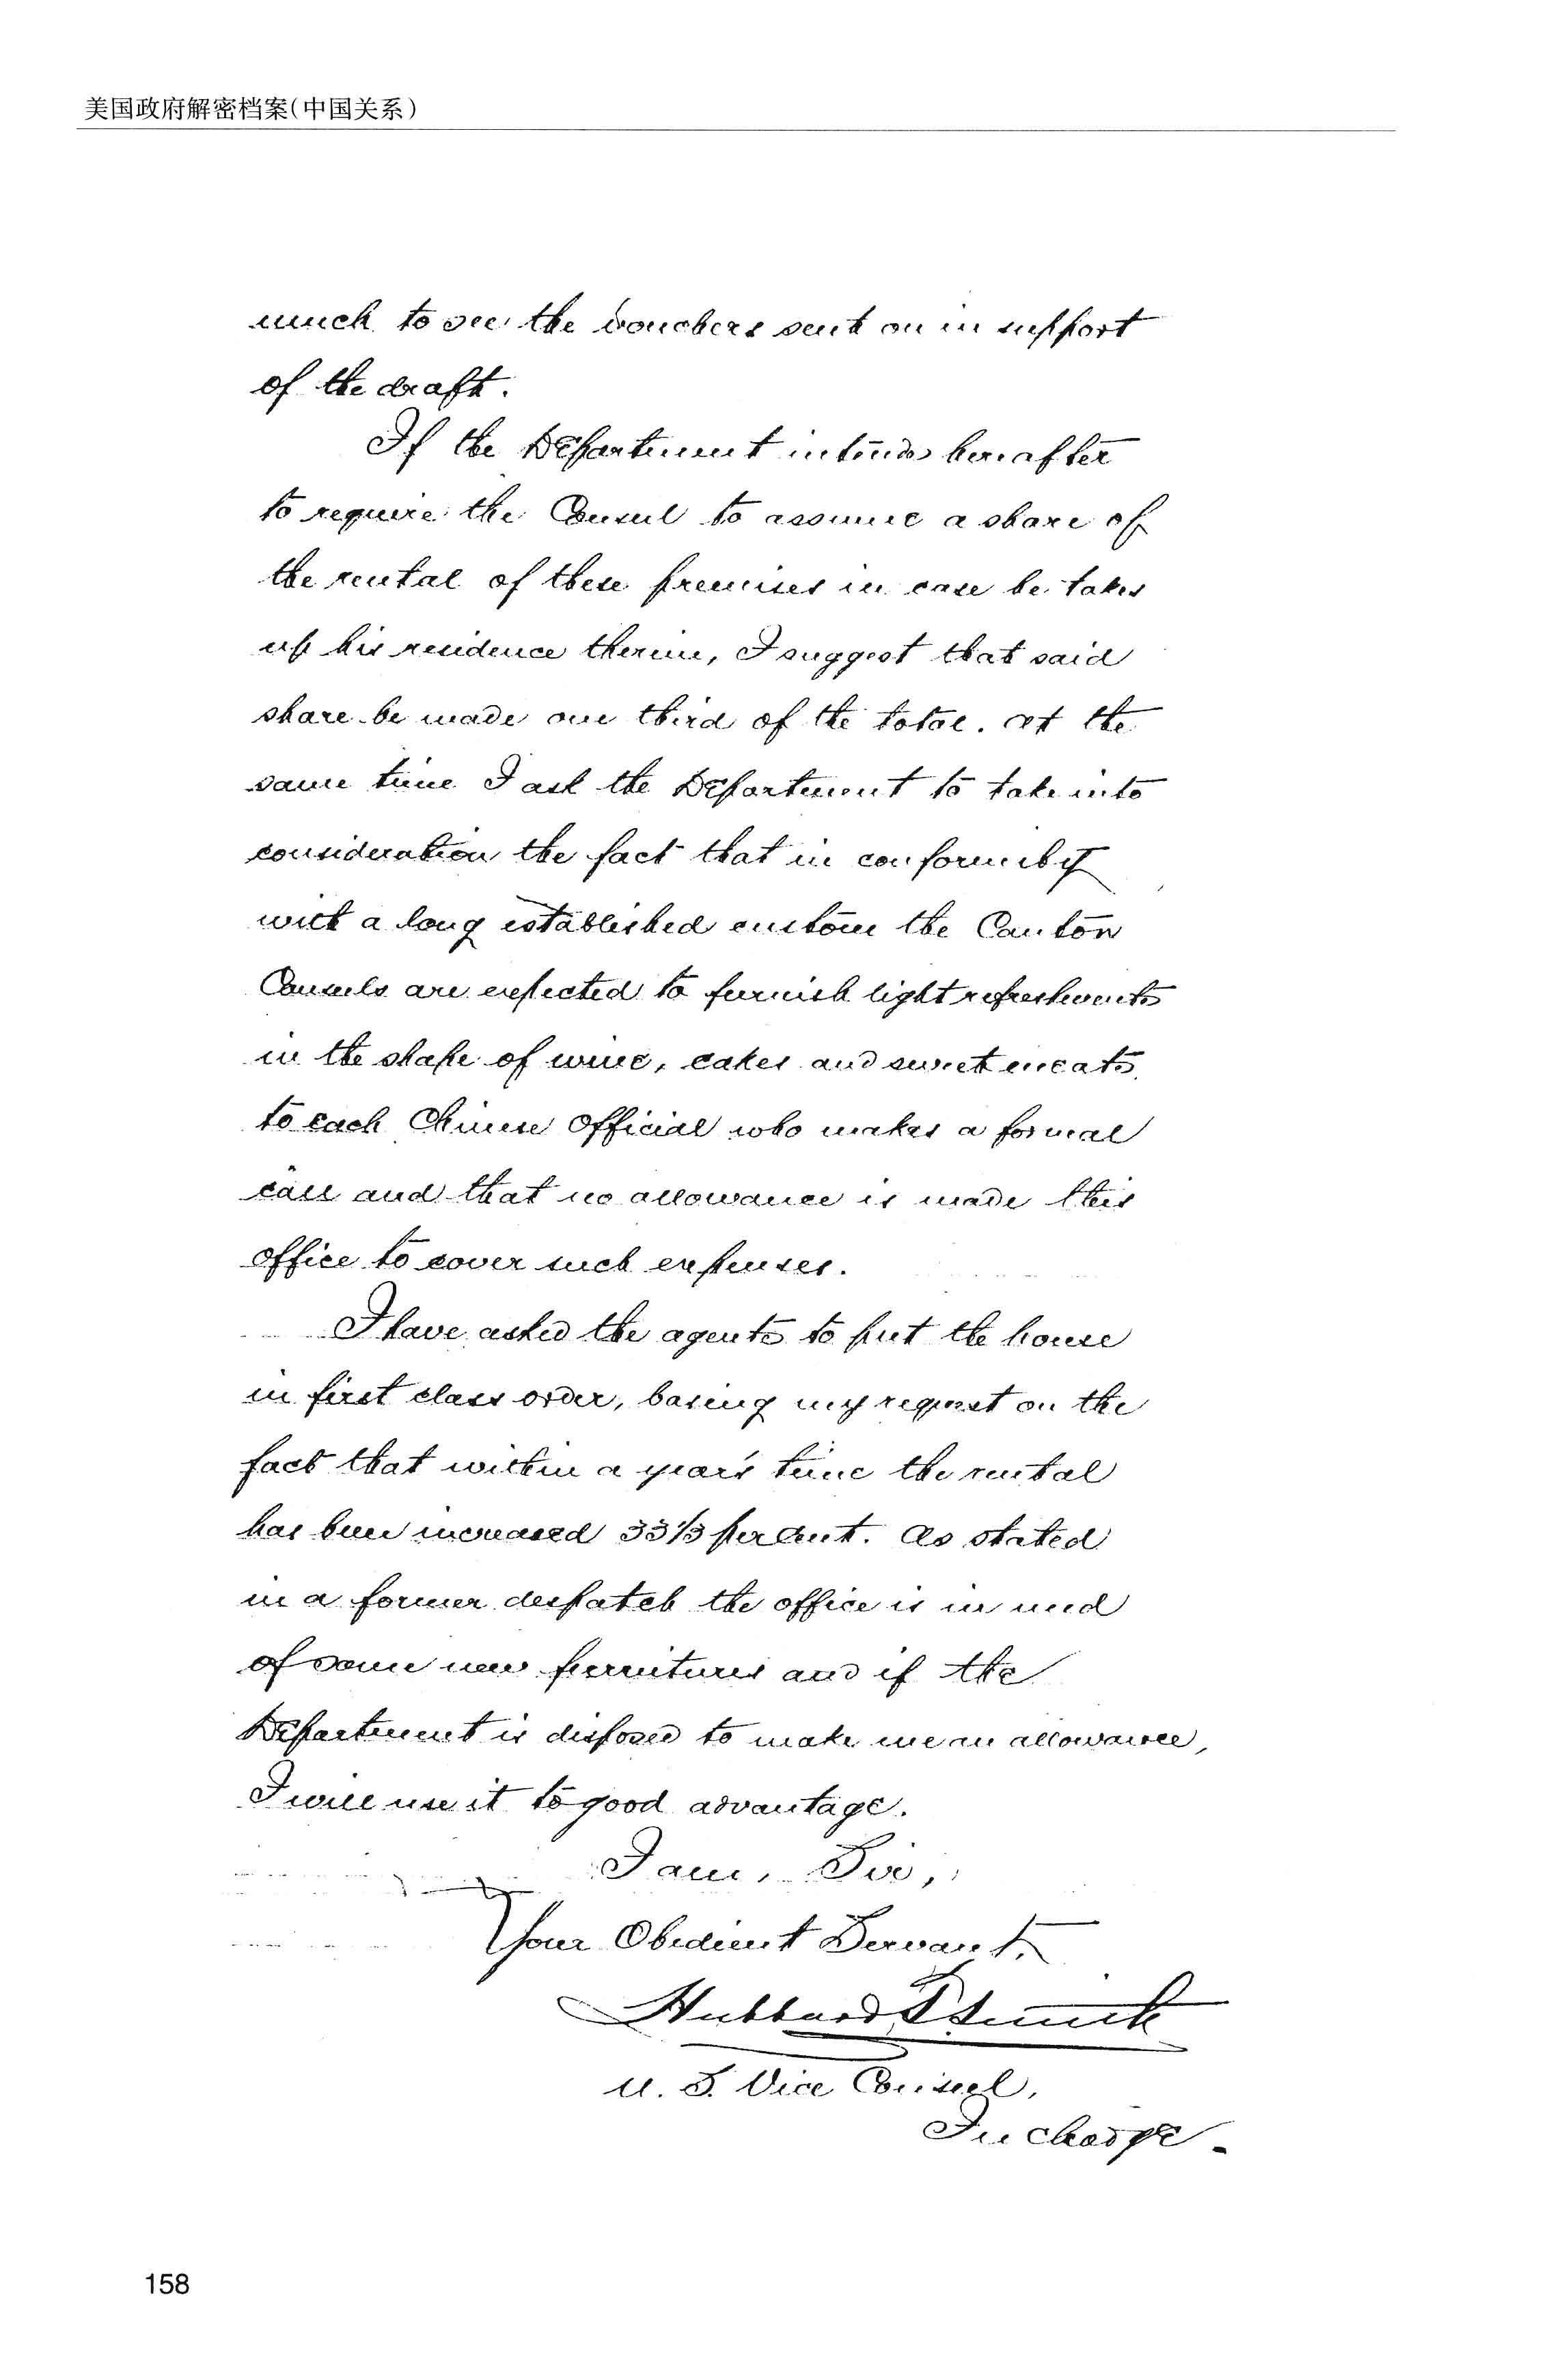 美国政府解密档案(中国关系)
much to see the vouchers sent on in support
of the draft.
If the Department intends hereafter
to require the Consul to assume a share of
the rental of these premises in case he takes
up his residence therein, I suggest that said
share be made one third of the total. At the
same time I ask the Department to take into
consideration the fact that in conformity
with a long established custom the Canton
Consuls are expected to furnish light refreshments
in the shape of wine, cakes and sweetmeats
to each Chinese Official who makes a formal
call and that no allowance is made this
office to cover such expenses.
I have asked the agents to put the house
in first class order, basing my request on the
fact that within a year's time the rental
has been increased 33 1/3 per Cent. As stated
in a former despatch the office is in need
of some new furnitures and if the
Department is disposed to make me an allowance,
I will use it to good advantage.
I am, Sir,
Your Obedient Servant,
Hubbard T. Smith
U. S. Vice Consul,
In charge.
158